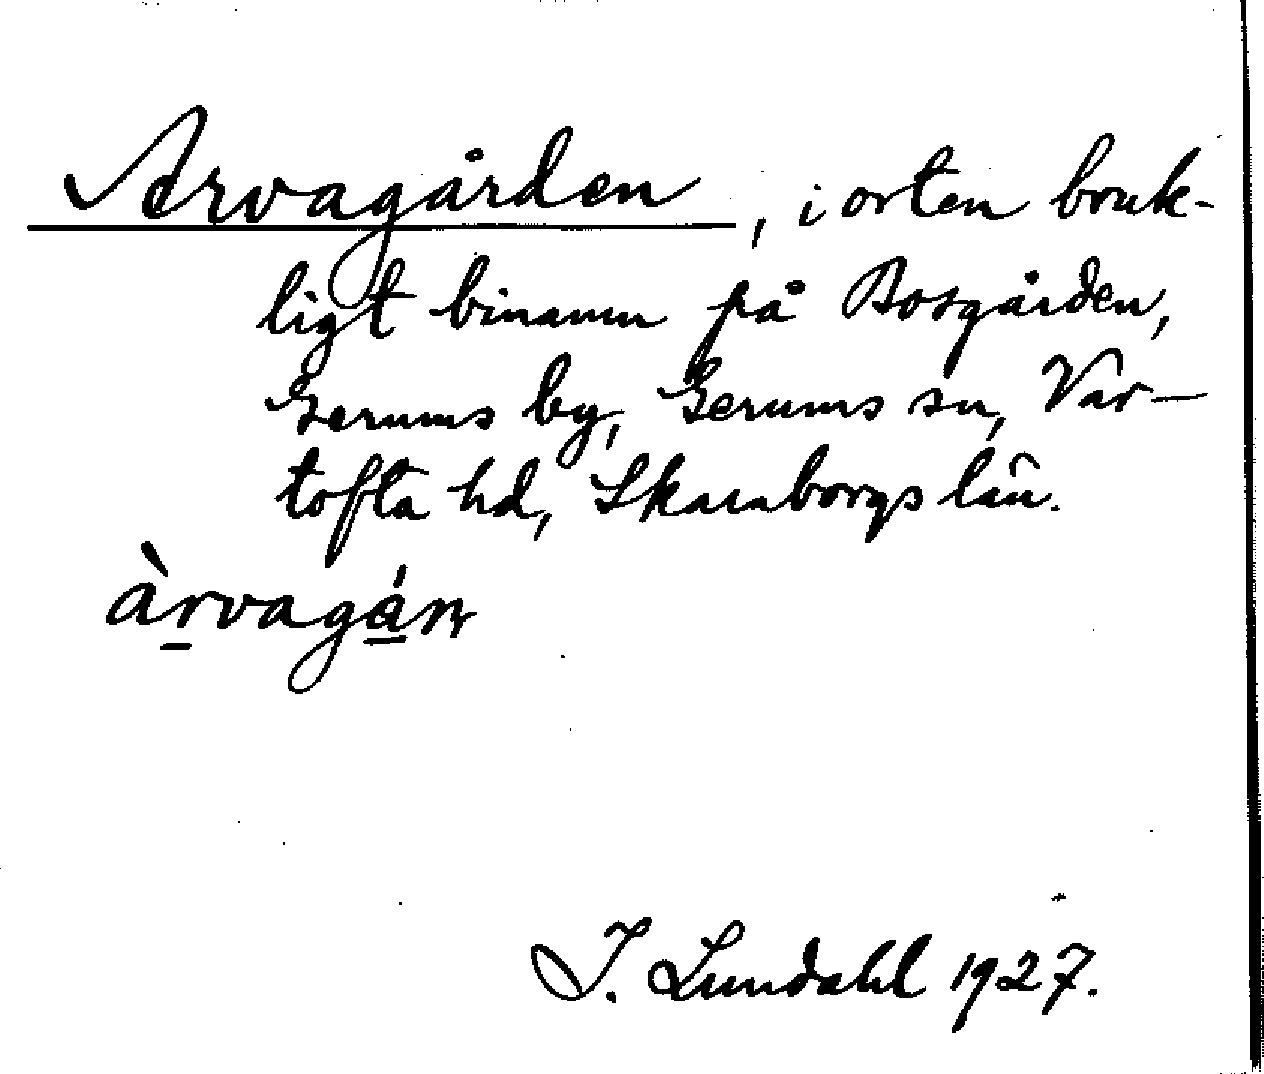 Arvagården, i orten bruk-
ligt binamn på Bosgården,
Gerums by, Gerums sn, Var-
tofta hd, Skaraborgs län.
I. Lundahl 1927.